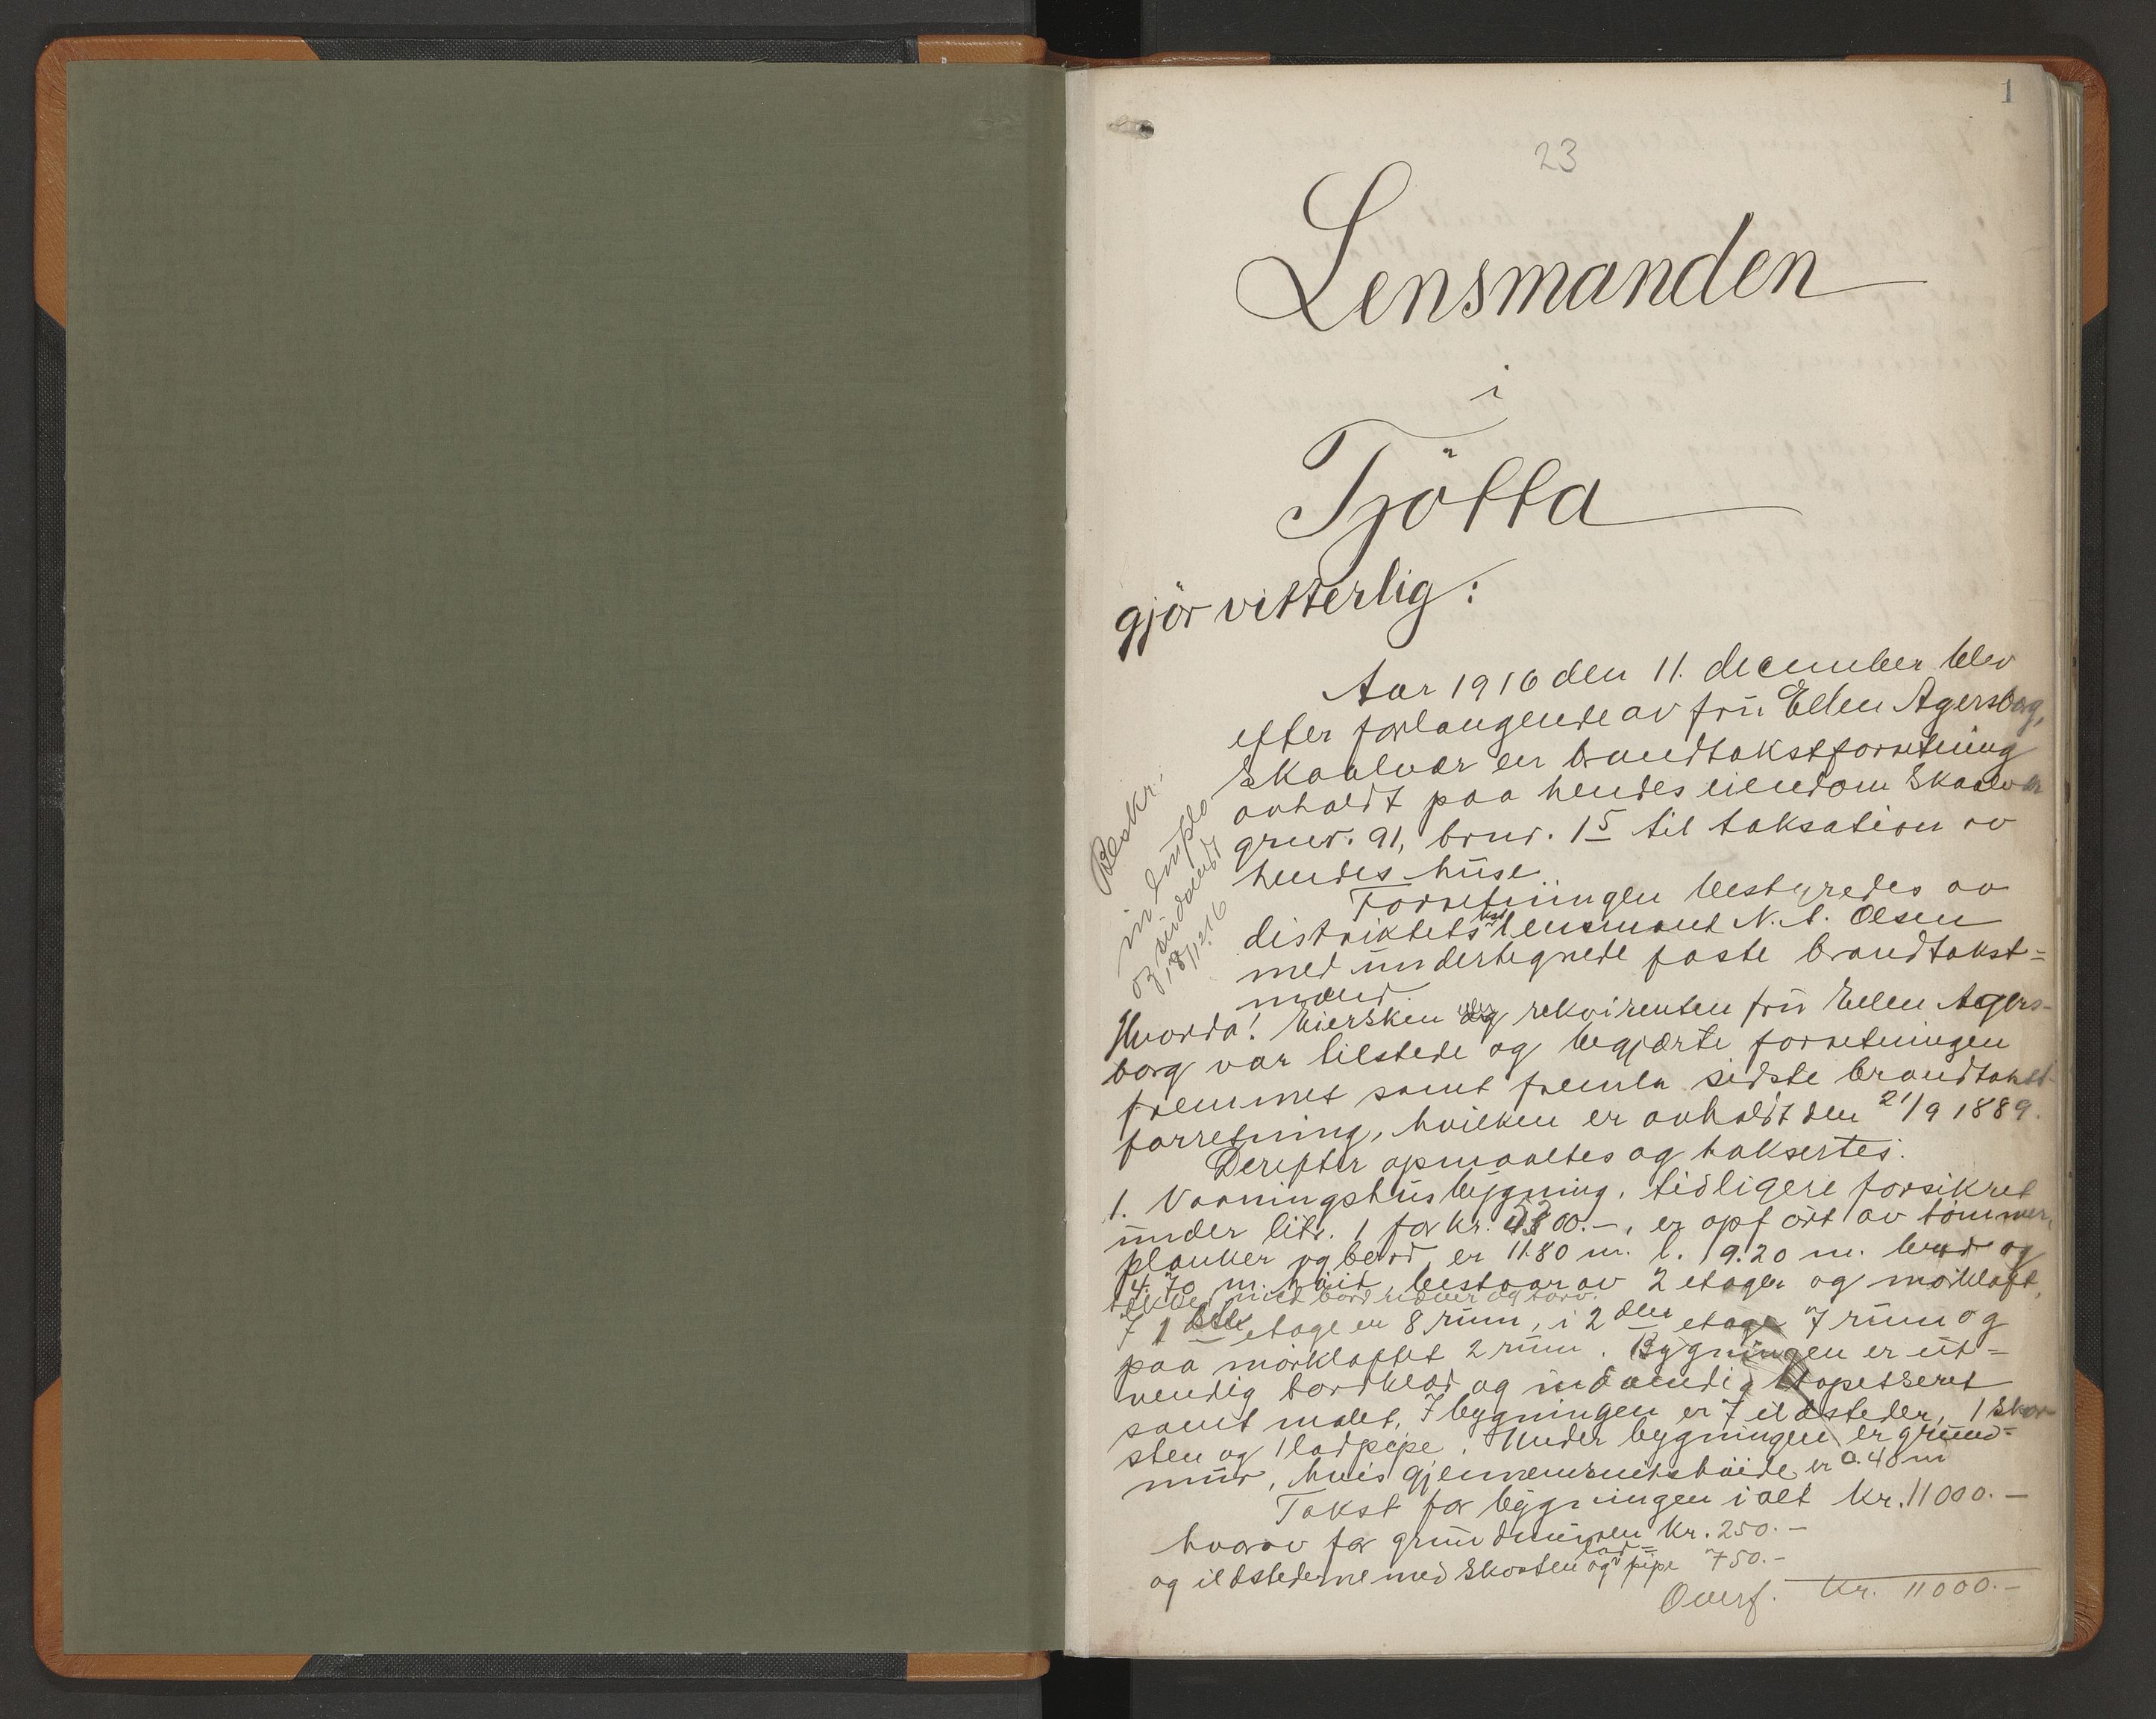 1
23
Lensmanden
i
Tjötta
gjör vitterlig:
Aar 1916 den 11. december blev
efter forlangende av frü Ellen Agersborg,
Skaalvær en brandtakstforretning
avholdt paa hendes eiendom Skaalvær
grnr. 91, brnr. 15 til taksation av
hendes hüse.
Forretningen bestyredes av
distriktets kst lensmand N. A. Olsen
med ündertegnede faste brandtakst=
mænd.
Beskr.
in duplo
og utstedt
18/12.16
Hvorda! Eiersken og rekvirenten frü Ellen Agers-
borg var tilstede og begjærte forretningen
fremmet samt fremla sidste brandtakst-
forretning, hvilken er avholdt den 21/9 1889.
Derefter opmaaltes og taksertes:
1. Vaaningshüsbygning, tidligere forsikret
ünder litr. 1 for kr. 00.-, er opfört av tömmer,
planker og bord, er 11.80 m. l. 9.20 m. bred og
4.70 m. höit, bestaar av 2 etager og mörkloft,
tækket med bord næver og torv.
I 1ste etage er 8 rüm, i 2den etage 7 rüm og
paa mörkloftet 2 rüm. Bygningen er üt=
vendig bordklæd og indvendig tapetseret
samt malet. I bygningen er 7 ildsteder, 1 skor-
sten og 1 ladpipe. Under bygningen er gründ=
mür, hvis gjennemsnitshöide er 0.40 m
Takst for bygningen i alt kr. 11000.-
hvorav for gründmüren kr. 250.-
og ildstederne med skorsten og lad= pipe 750.-
Overf. Kr. 11000.-